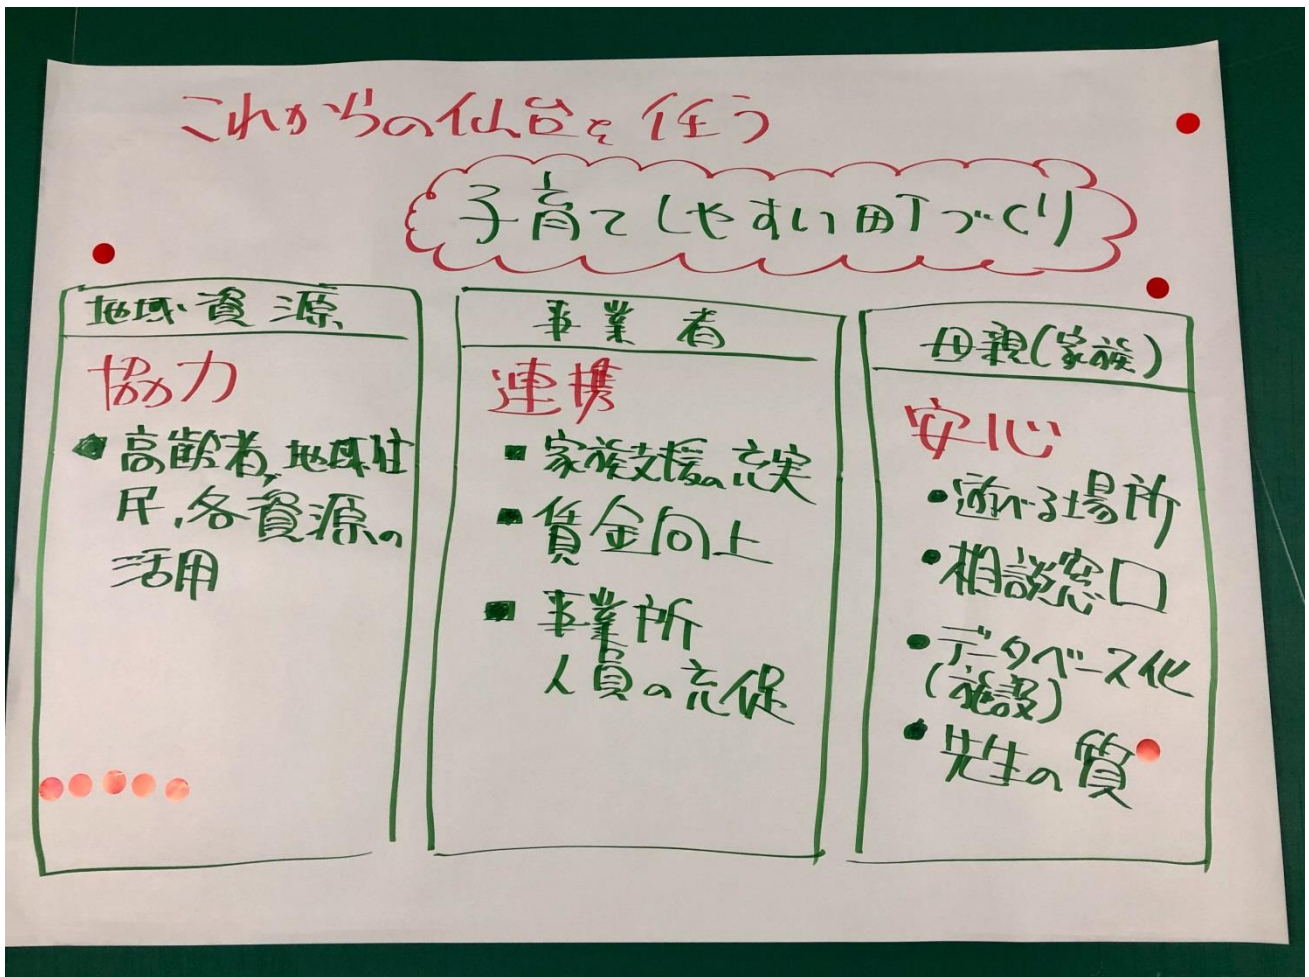 これからの仙台を任う
子育てしやすい町づくり
地域資源
協力
高齢者、地域住
民、各資源の
活用
事業者
連携
家族支援の充実
賃金向上
事業所
人員の充促
母親(家族)
安心
遊べる場所
相談窓口
データベース化
(施設)
先生の質